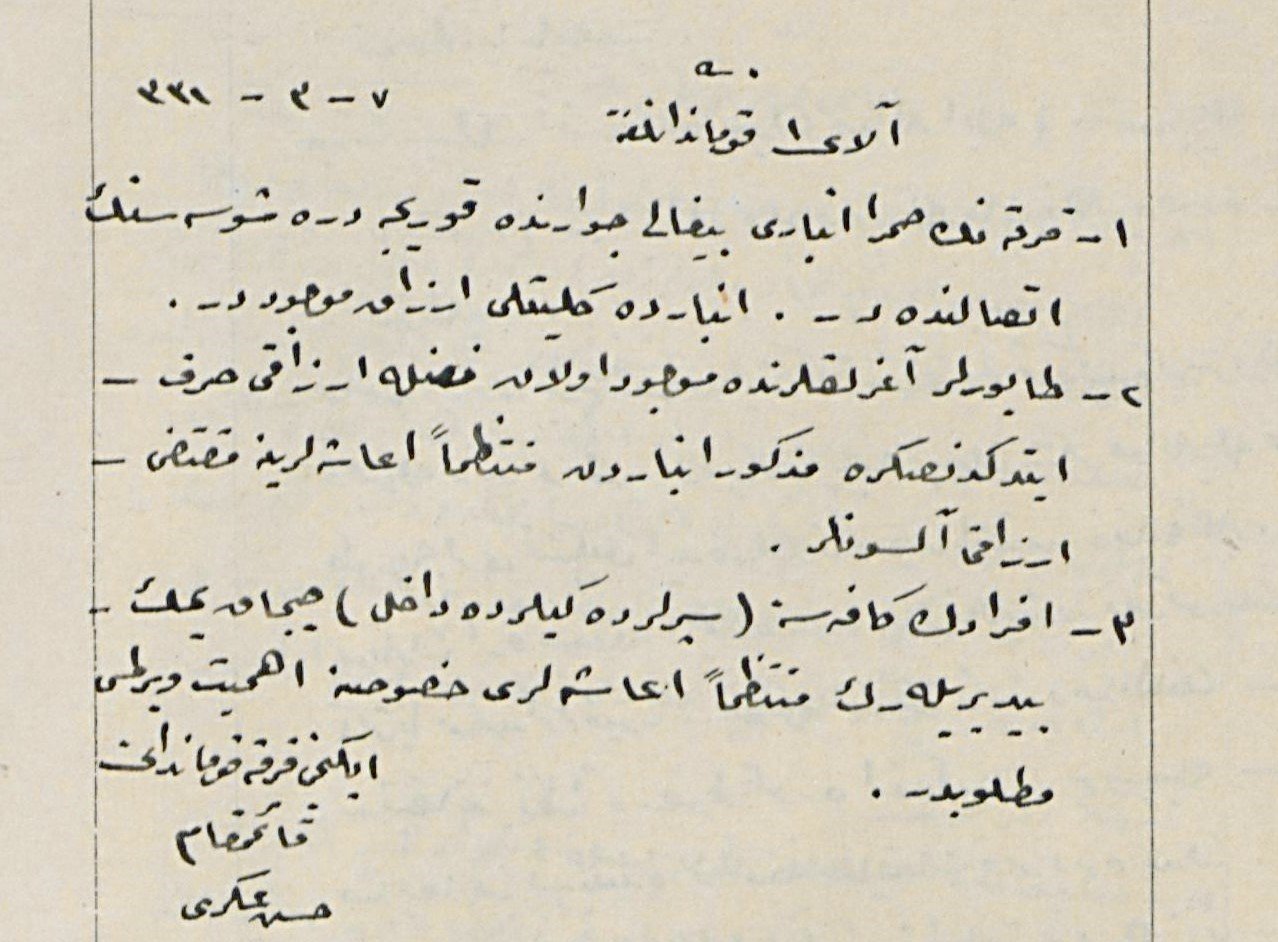 ٧ - ٣ - ٣٣١
آلاى ١ قومانداننه
١ـ فرقه نك صحرا انبارى بيغالى جوارنده قوريجه دره شوسه سنك
اتصالنده در . انبارده كليتلى ارزاق موجوددر .
٢ـ طابورلر آغرلقلرنده موجود اولان فضله ارزاقى صرف
ايتدكدنصكره مذكور انباردن منتظماً اعاشه لرينه مقتضى
ارزاقى آلسونلر .
٣ـ افرادك كافه سنه ( سپرلرده كيلرده داخلى ) صيجاق يمك
ييديريله رك منتظماً اعاشه لرى خصوصنه اهميت ويرلمسى
مطلوبدر .
ايكنجى فرقه قوماندانى
قائممقام
حسن عسكرى